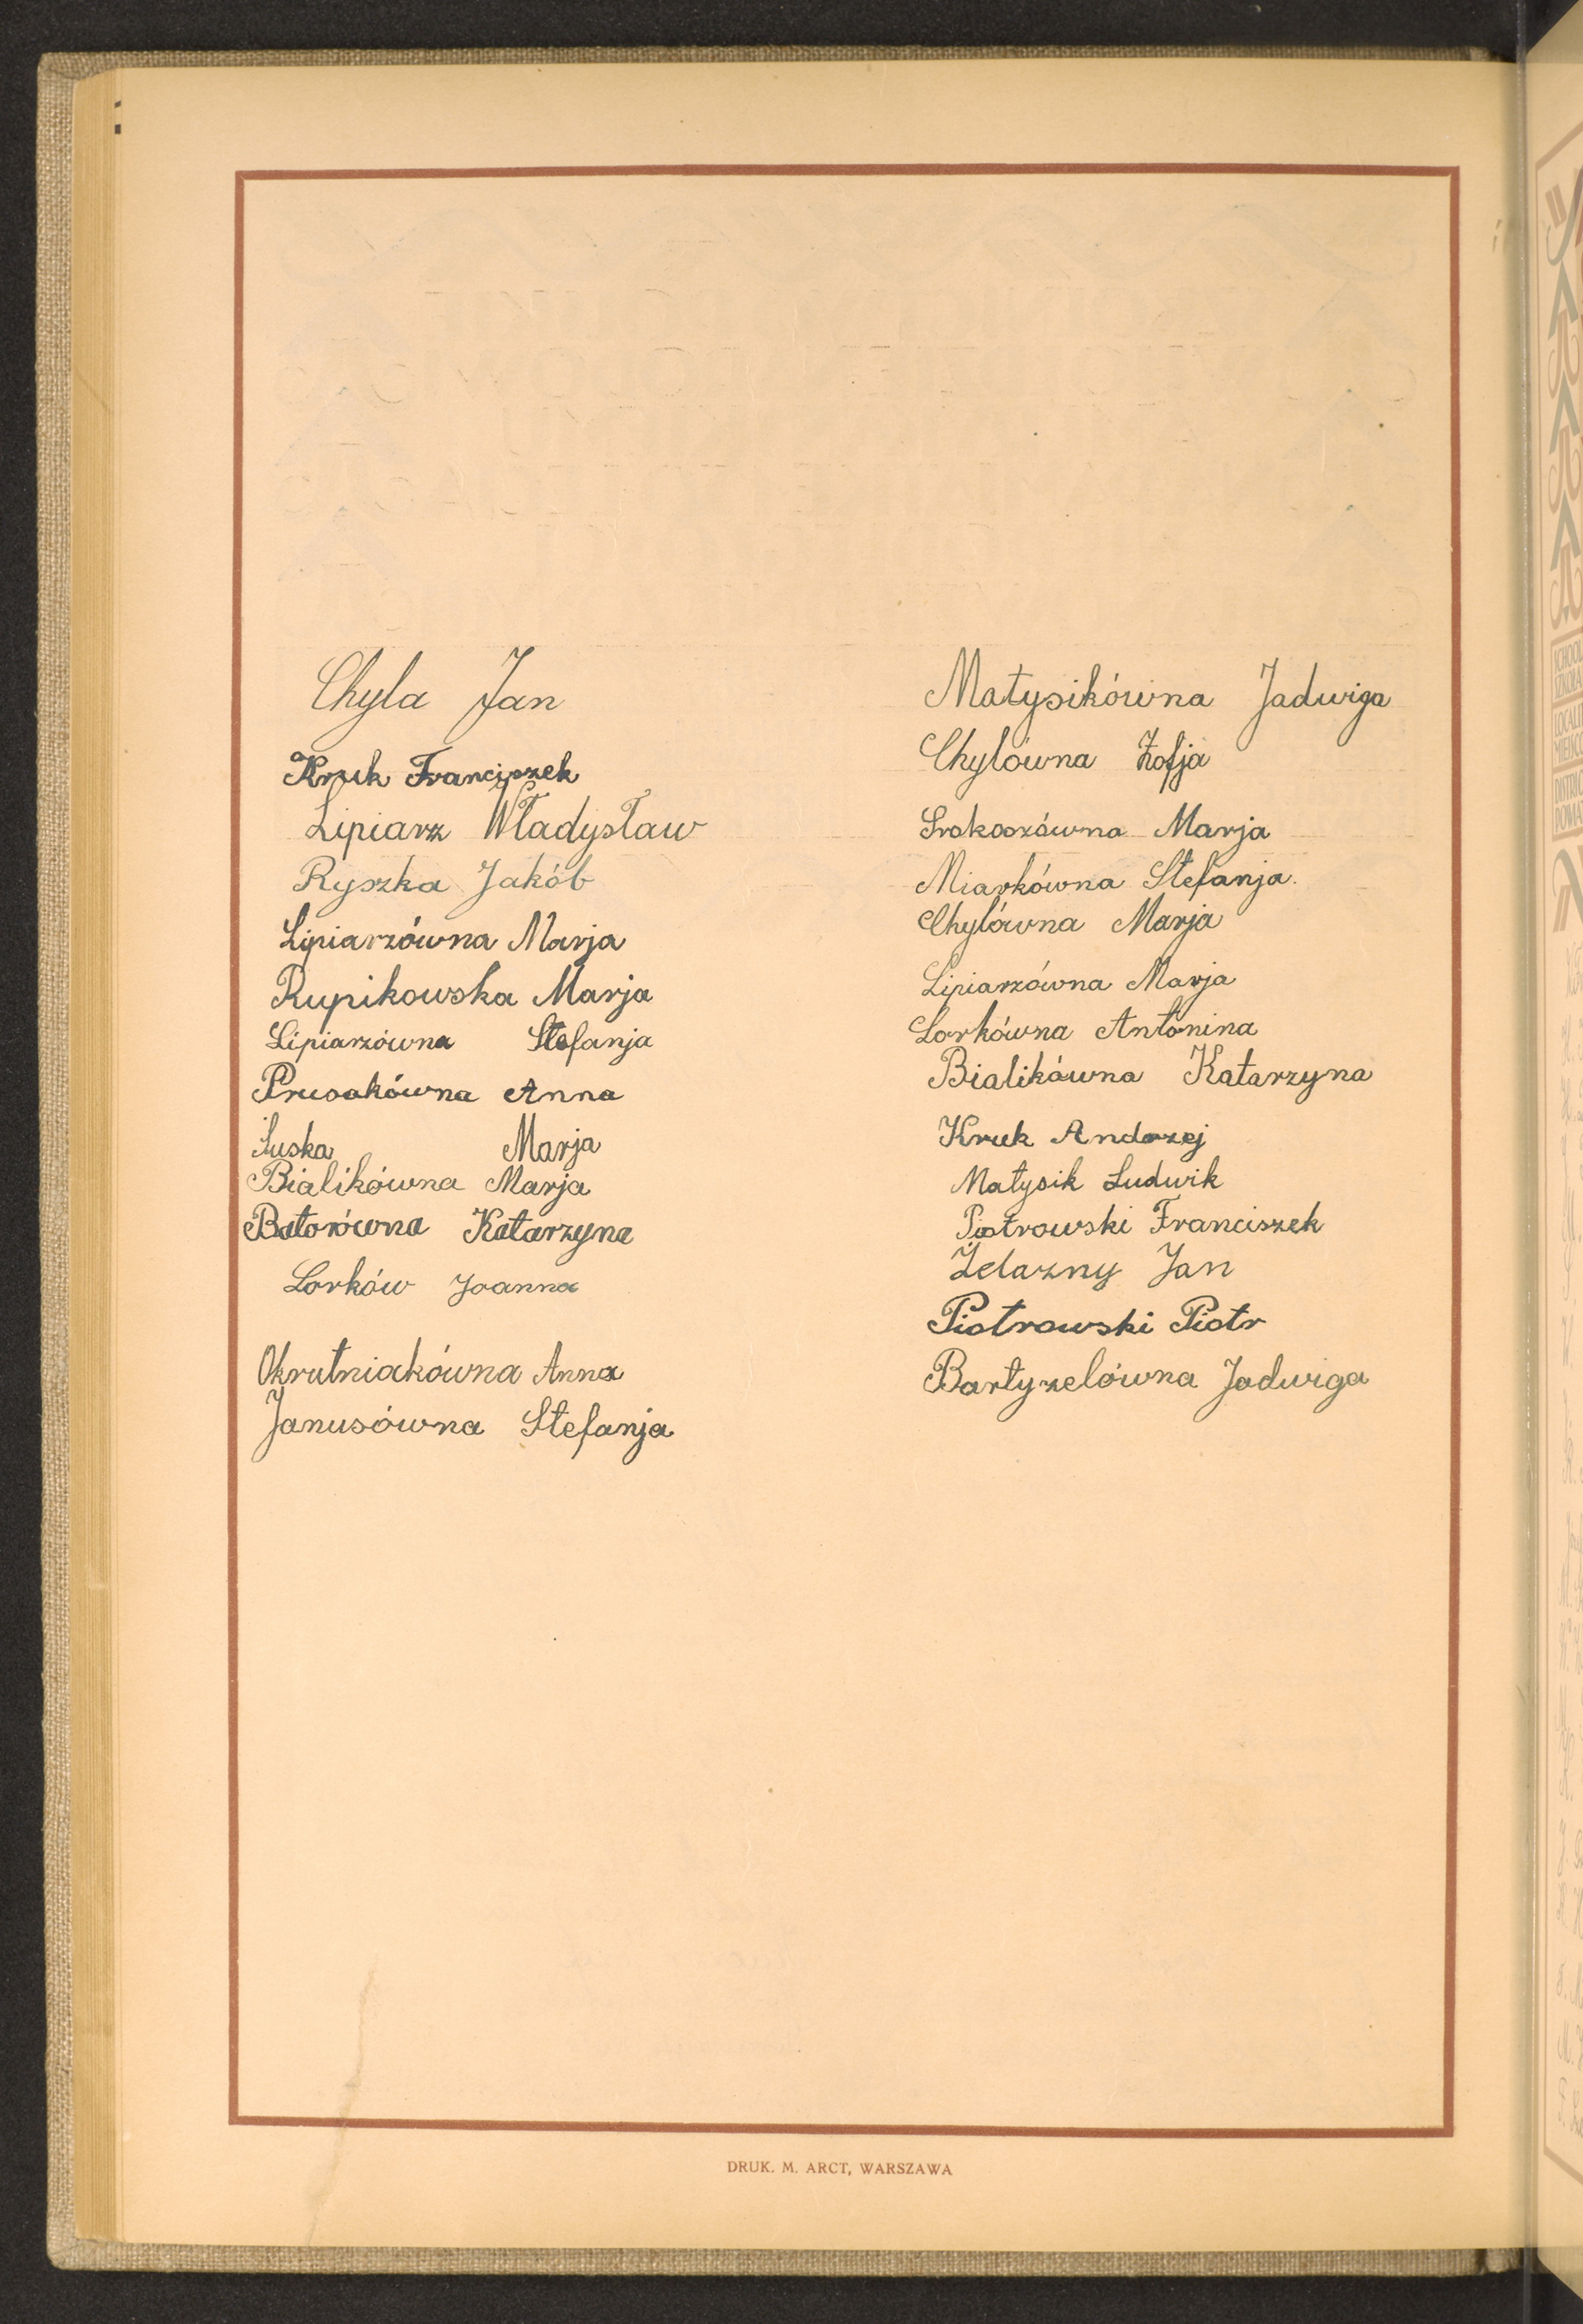 Chyla Jan
Kruk Franciszek
Lipiarz Władysław
Ryszka Jakób
Lipiarzówna Marja
Rupikowska Marja
Lipiarzówna Stefanja
Prusakówna Anna
Suska Marja
Bialikówna Marja
Batorówna Katarzyna
Lorków Joanna
Okrutniakówna Anna
Janusówna Stefanja
Matysikówna Jadwiga
Chylówna Zofja
Srokoszówna Marja
Miarkówna Stefanja.
Chylówna Marja
Lipiarzówna Marja
Lorkówna Antonina
Bialikówna Katarzyna
Kruk Andrzej
Matysik Ludwik
Piotrowski Franciszek
Żelazny Jan
Piotrowski Piotr
Bartyzelówna Jadwiga
DRUK. M. ARCT, WARSZAWA